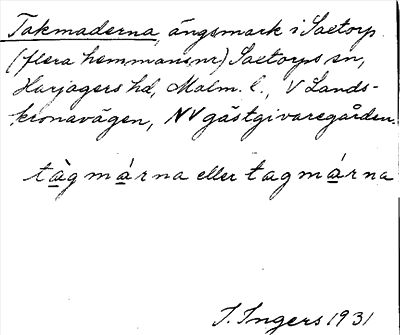 Takmaderna, ängsmark i Saetorp
(flera hemmansnr) Saetorps sn,
Harjagers hd, Malm. l., V Lands-
kronavägen, NV gästgivaregården.
tàgmárna eller tagmárna
I. Ingers 1931